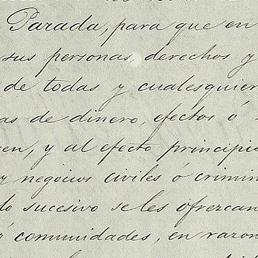 Parada, para que en
sus personas, derechos y
de todas y cualesquier
as de dinero, efectos ó
en, y al efecto principi
y negocios civiles ó crimin
do sucesivo se les ofrezcan
ó comunidades, en razon